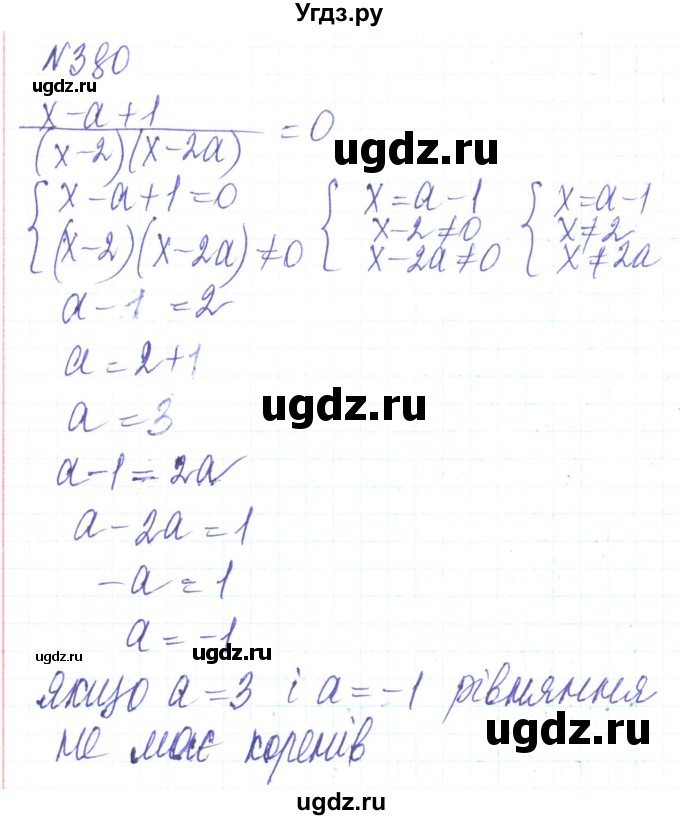 Угдз.ру
№380
ugdz.ru
x-a+1
(x-2)(x-2a) = 0
ugdz.ru
{ x-a+1=0 { x=a-1 { x=a-1
(x-2)(x-2a)≠0 x-2≠0 x≠2
x-2a≠0 x≠2a
a-1=2
ugdz.ru
a=2+1
ugdz.ru
a=3
a-1=2a
a-2a=1
-a=1
a=-1
ugdz.ru
ugdz.ru
якщо a=3 і a=-1 рівняння
ugdz.ru
не має коренів
ugdz.ru
ugdz.ru